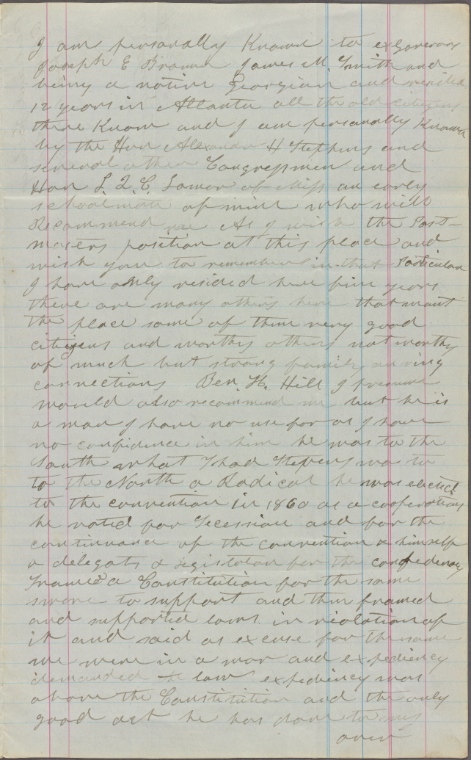 I am personally Known to exGovernor
Joseph E Brown James M. Smith and
being a native Georgian and resided
12 years in Atlanta all the old citizens
there Know and I am personally Known
by the Hon Alexander H Stephens and
several other Congressmen and
Hon L. Q. C. Lamar of Miss an early
schoolmate of mine who will
Recommend me As I wish the Post-
masers position at this place and
wish you to remember in that Particular
I have only resided here five years
there are many others here that want
the place some of them very good
citizens and worthy others not worthy
of much but strong family
connections Ben H. Hill I presume
would also recommend me but he is
a man I have no use for as I have
no confidence in him he was to the
South what Thad Stephens was to
to the North a Radical he was elected
to the convention in 1860 as a cooperationist
he voted for Secession and for the
continuance of the convention & himself
a delegate & Legislator for the confederacy
Framed a Constitution for the same
swore to support and then framed
and supported laws in violation of
it and said as excuse for the same
we were in a war and expediency
demanded law expediency was
above the Constitution and the only
good act he has done to my
over